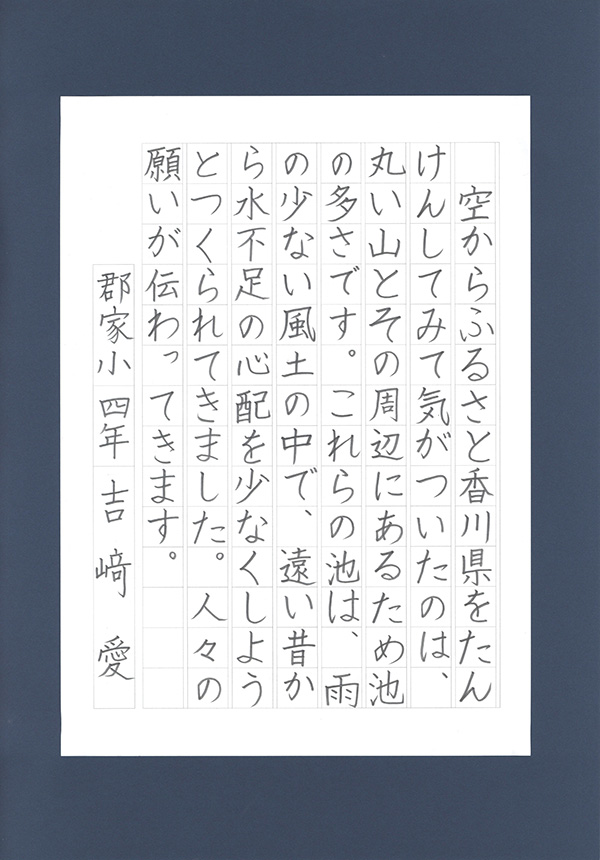 空からふるさと香川県をたん
けんしてみて気がついたのは、
丸い山とその周辺にあるため池
の多さです。これらの池は、雨
の少ない風土の中で、遠い昔か
ら水不足の心配を少なくしよう
とつくられてきました。人々の
願いが伝わってきます。
郡家小 四年 吉﨑 愛